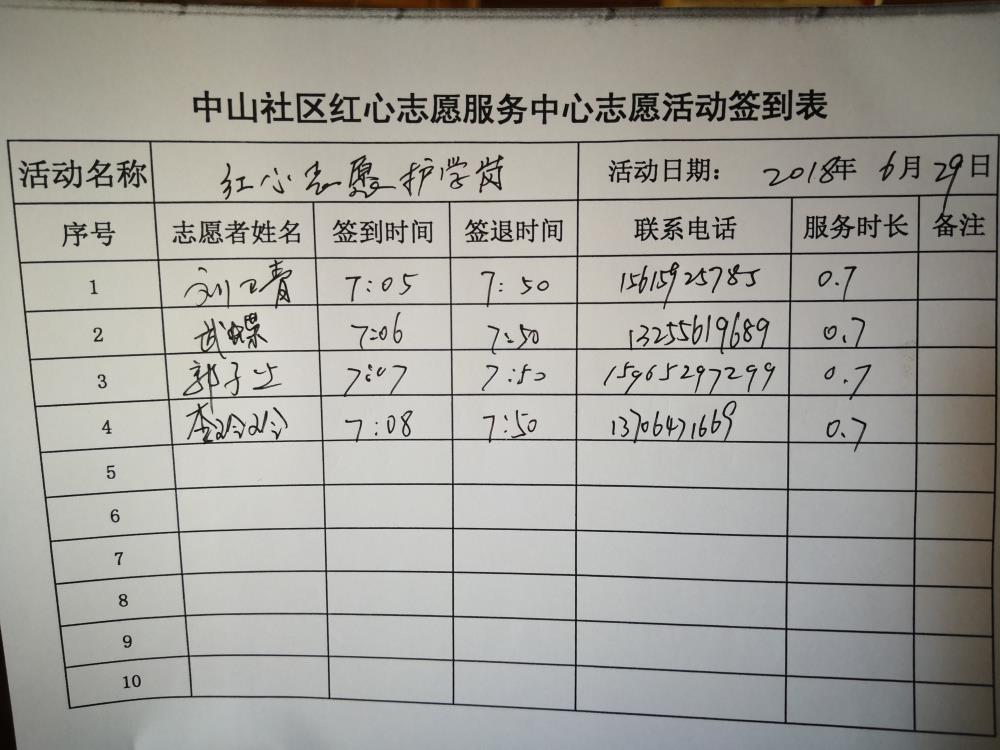 中山社区红心志愿服务中心志愿活动签到表
活动名称 红心志愿护学岗 活动日期： 2018年 6月29日
序号 志愿者姓名 签到时间 签退时间 联系电话 服务时长 备注
1 刘卫青 7:05 7:50 15615925785 0.7
2 武蝶 7:06 7:50 13255619689 0.7
3 郭子 7:07 7:50 15965297299 0.7
4 李玲玲 7:08 7:50 13706471669 0.7
5
6
7
8
9
10